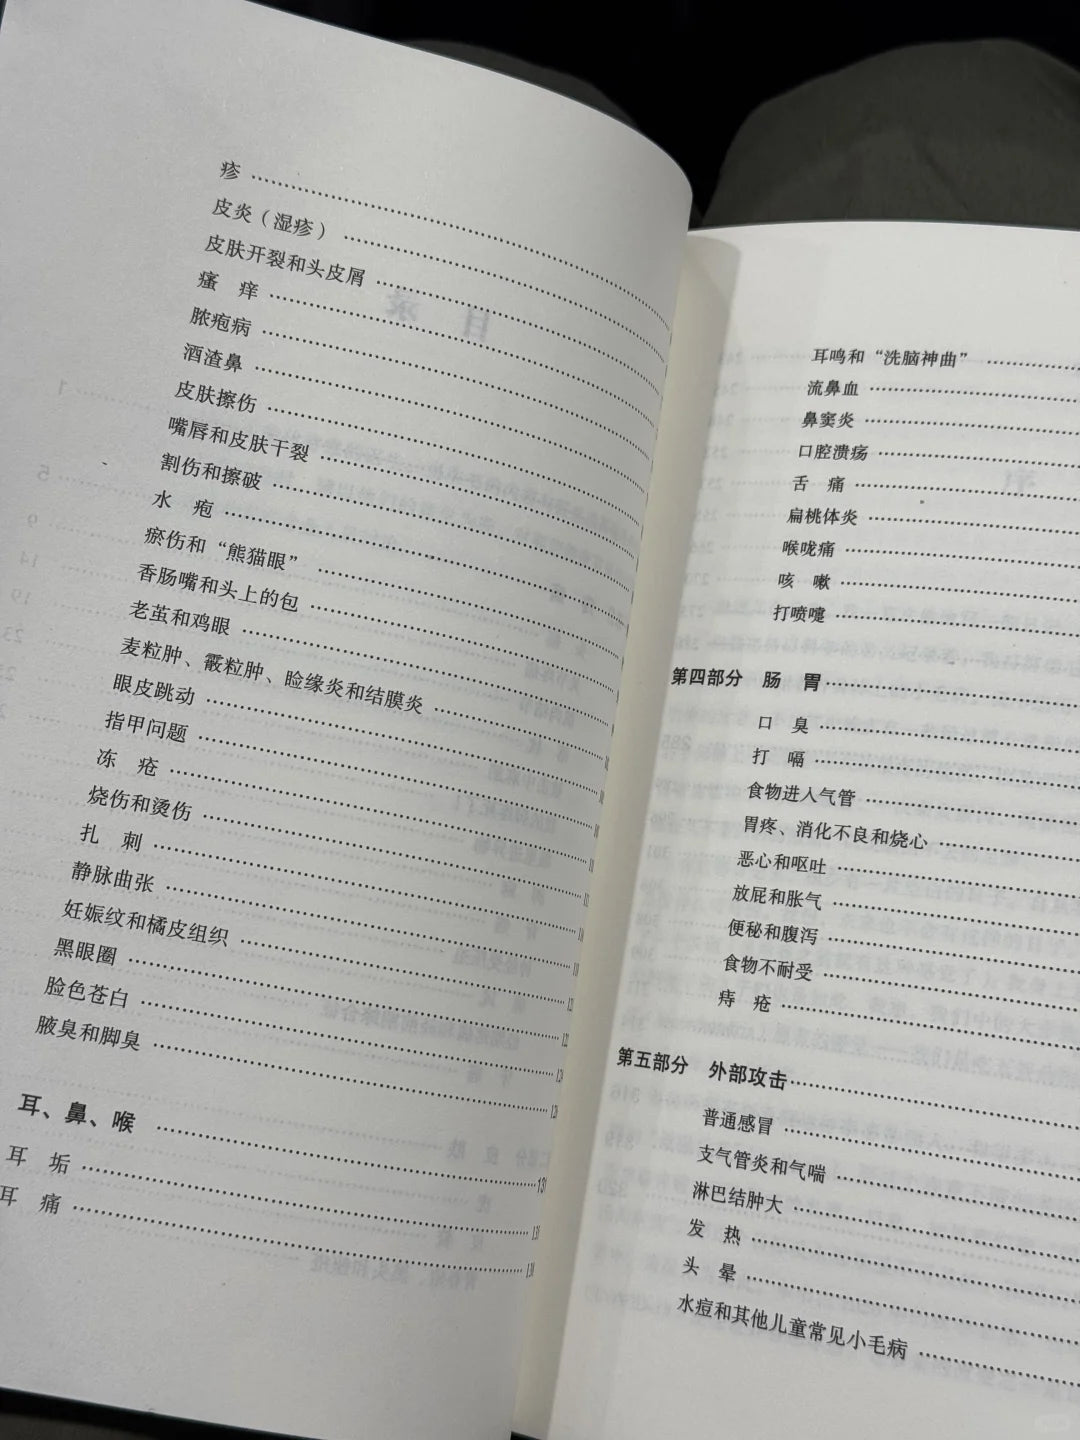 疹
皮炎（湿疹）
皮肤开裂和头皮屑
瘙 痒
脓疱病
酒渣鼻
皮肤擦伤
嘴唇和皮肤干裂
割伤和擦破
水 疱
瘀伤和“熊猫眼”
香肠嘴和头上的包
老茧和鸡眼
麦粒肿、霰粒肿、睑缘炎和结膜炎
眼皮跳动
指甲问题
冻 疮
烧伤和烫伤
扎 刺
静脉曲张
妊娠纹和橘皮组织
黑眼圈
脸色苍白
腋臭和脚臭
耳、鼻、喉
耳 垢
耳 痛
耳鸣和“洗脑神曲”
流鼻血
鼻窦炎
口腔溃疡
舌 痛
扁桃体炎
喉咙痛
咳 嗽
打喷嚏
第四部分 肠 胃
口 臭
打 嗝
食物进入气管
胃疼、消化不良和烧心
恶心和呕吐
放屁和胀气
便秘和腹泻
食物不耐受
痔 疮
第五部分 外部攻击
普通感冒
支气管炎和气喘
淋巴结肿大
发 热
头 晕
水痘和其他儿童常见小毛病